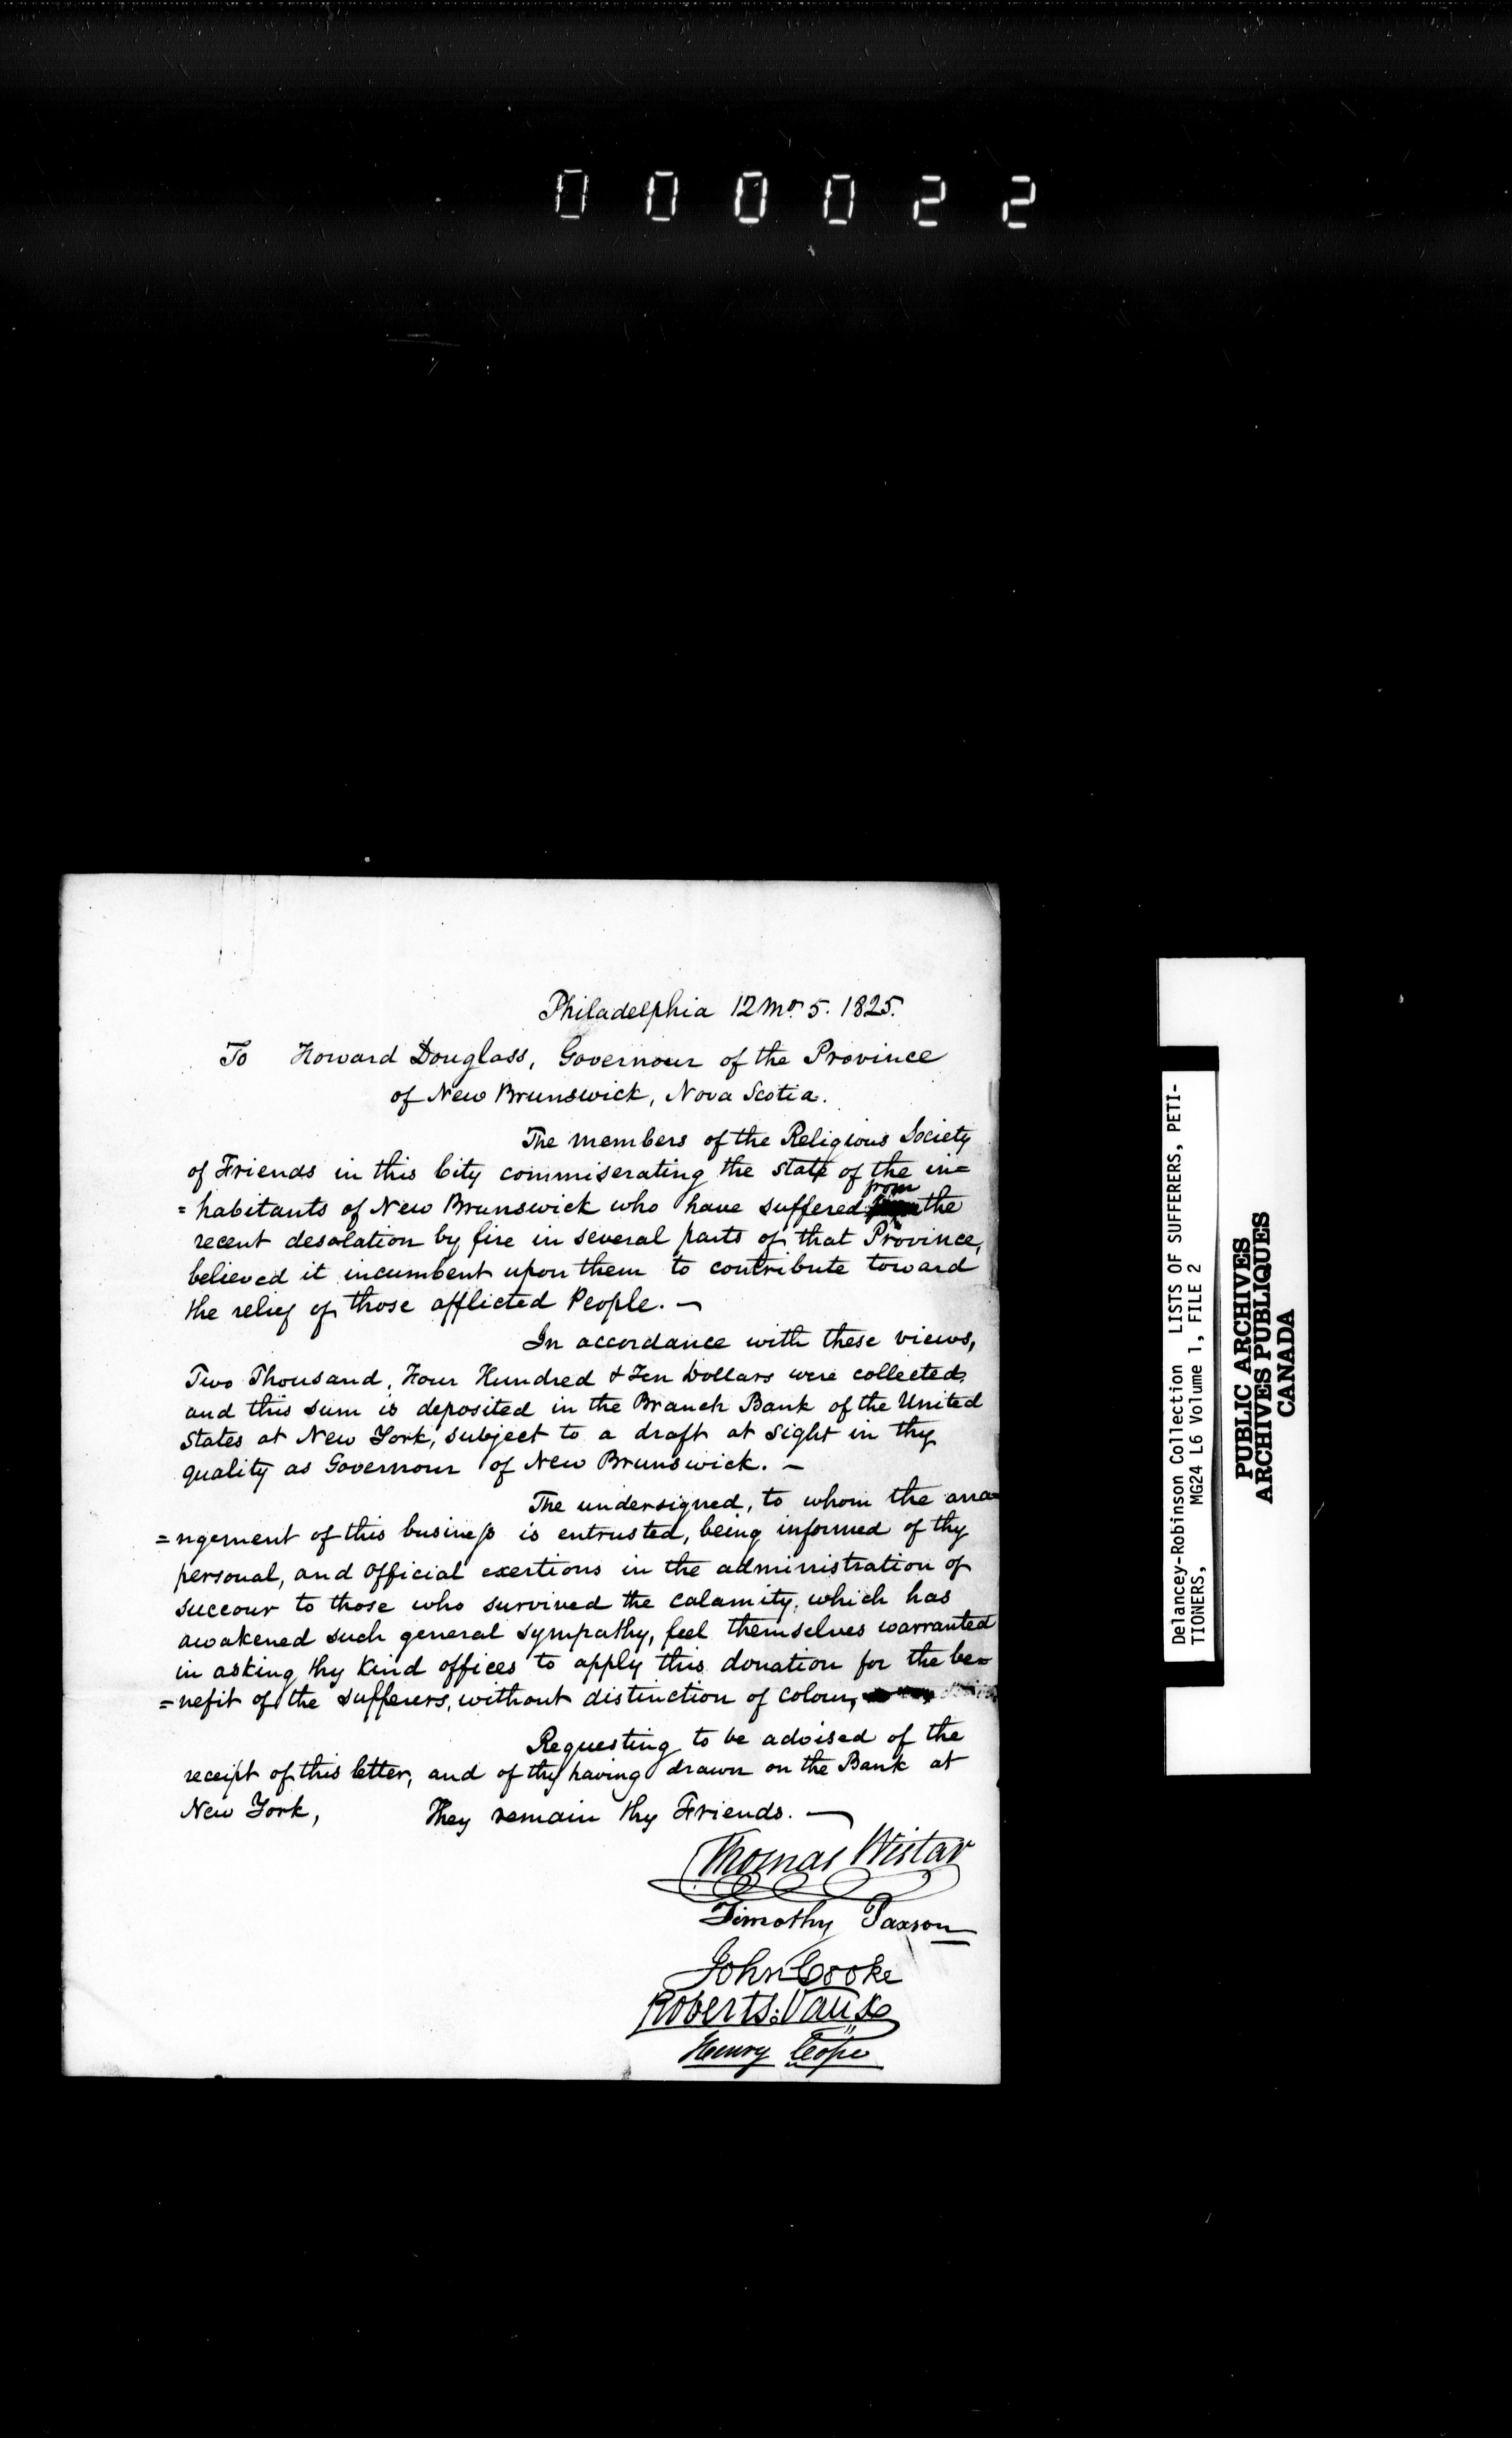 000022
Philadelphia 12 Mo. 5. 1825.
To Howard Douglass, Governour of the Province
of New Brunswick, Nova Scotia.
The members of the Religious Society
of Friends in this City commiserating the state of the in=
=habitants of New Brunswick who have suffered from the
recent desolation by fire in several parts of that Province,
believed it incumbent upon them to contribute toward
the relief of those afflicted People. —
In accordance with these views,
Two Thousand, Four Hundred & Ten Dollars were collected,
and this sum is deposited in the Branch Bank of the United
States at New York, subject to a draft at sight in thy
quality as Governour of New Brunswick. —
The undersigned, to whom the arra=
=ngement of this business is entrusted, being informed of thy
personal, and official exertions in the administration of
succour to those who survived the calamity, which has
awakened such general sympathy, feel themselves warranted
in asking thy kind offices to apply this donation for the be=
=nefit of the sufferers, without distinction of colour,
Requesting to be advised of the
receipt of this letter, and of thy having drawn on the Bank at
New York, They remain thy Friends. —
Thomas Wistar
Timothy Paxson
John Cooke
Roberts Vaux
Henry Cope
Delancey-Robinson Collection LISTS OF SUFFERERS, PETI-
TIONERS, MG24 L6 Volume 1, FILE 2
PUBLIC ARCHIVES
ARCHIVES PUBLIQUES
CANADA